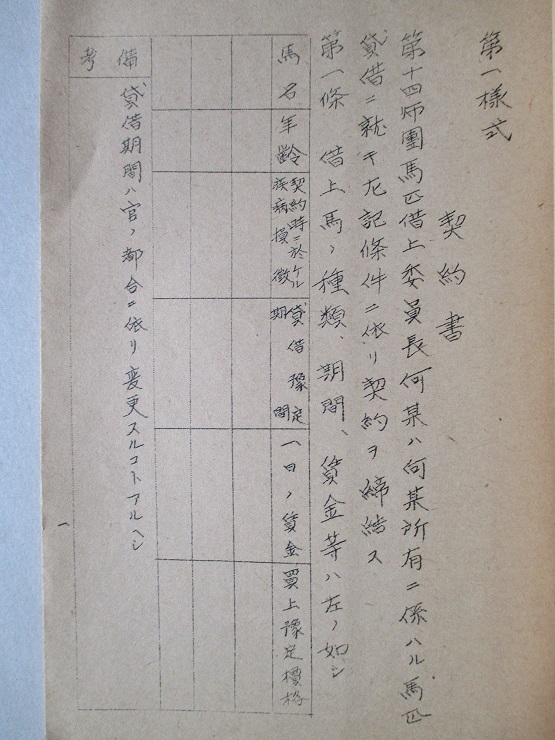 第一樣式
契約書
第十四師團馬匹借上委員長何某ハ何某所有ニ係ハル馬匹
貸借ニ就キ左記條件ニ依リ契約ヲ締結ス
第一條 借上馬ノ種類、期間、賃金等ハ左ノ如シ
馬名
年齡
契約時ニ於ケル
疾病損徴
貸借豫定
期間
一日ノ賃金
買上豫定價格
備考
貸借期間ハ官ノ都合ニ依リ変更スルコトアルヘシ
一